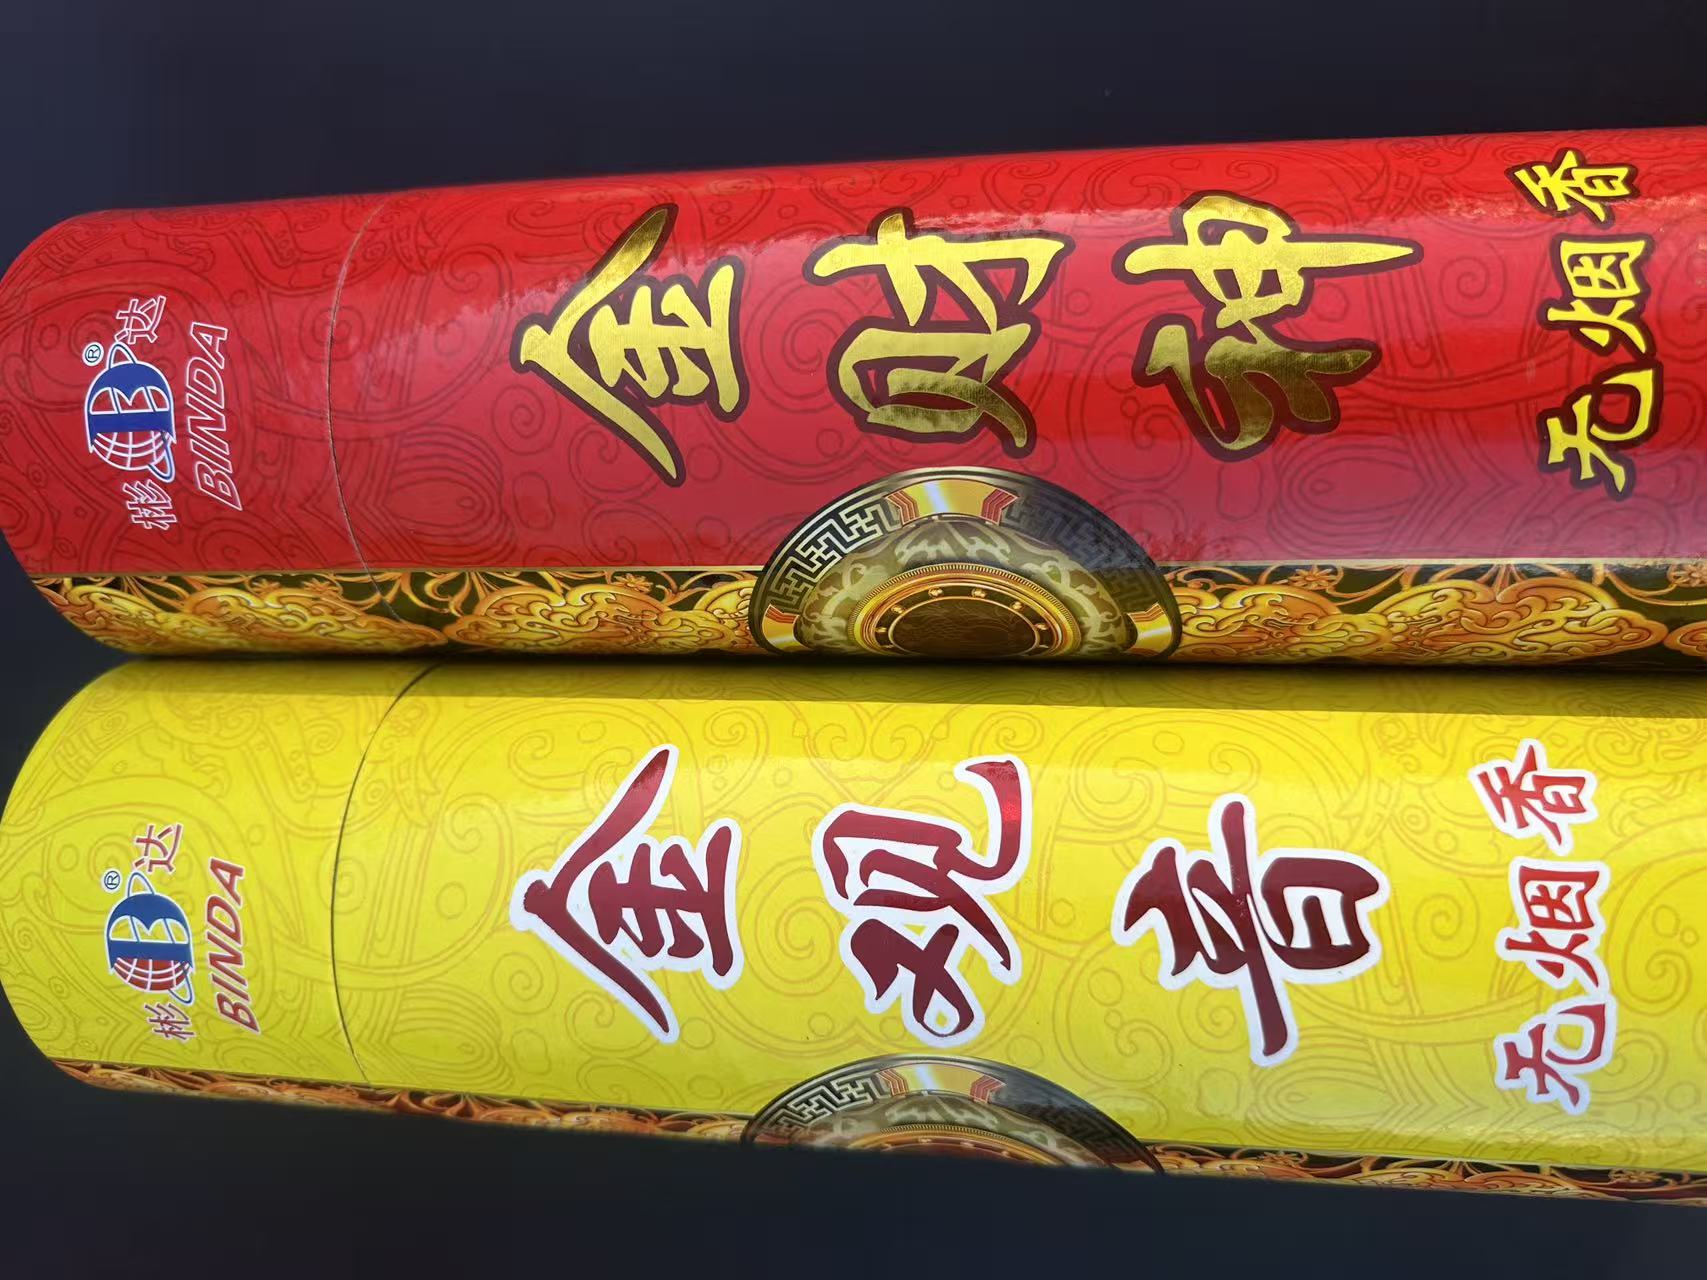 彬达
®
B
BINDA
金财神
无烟香
彬达
®
B
BINDA
金观音
无烟香